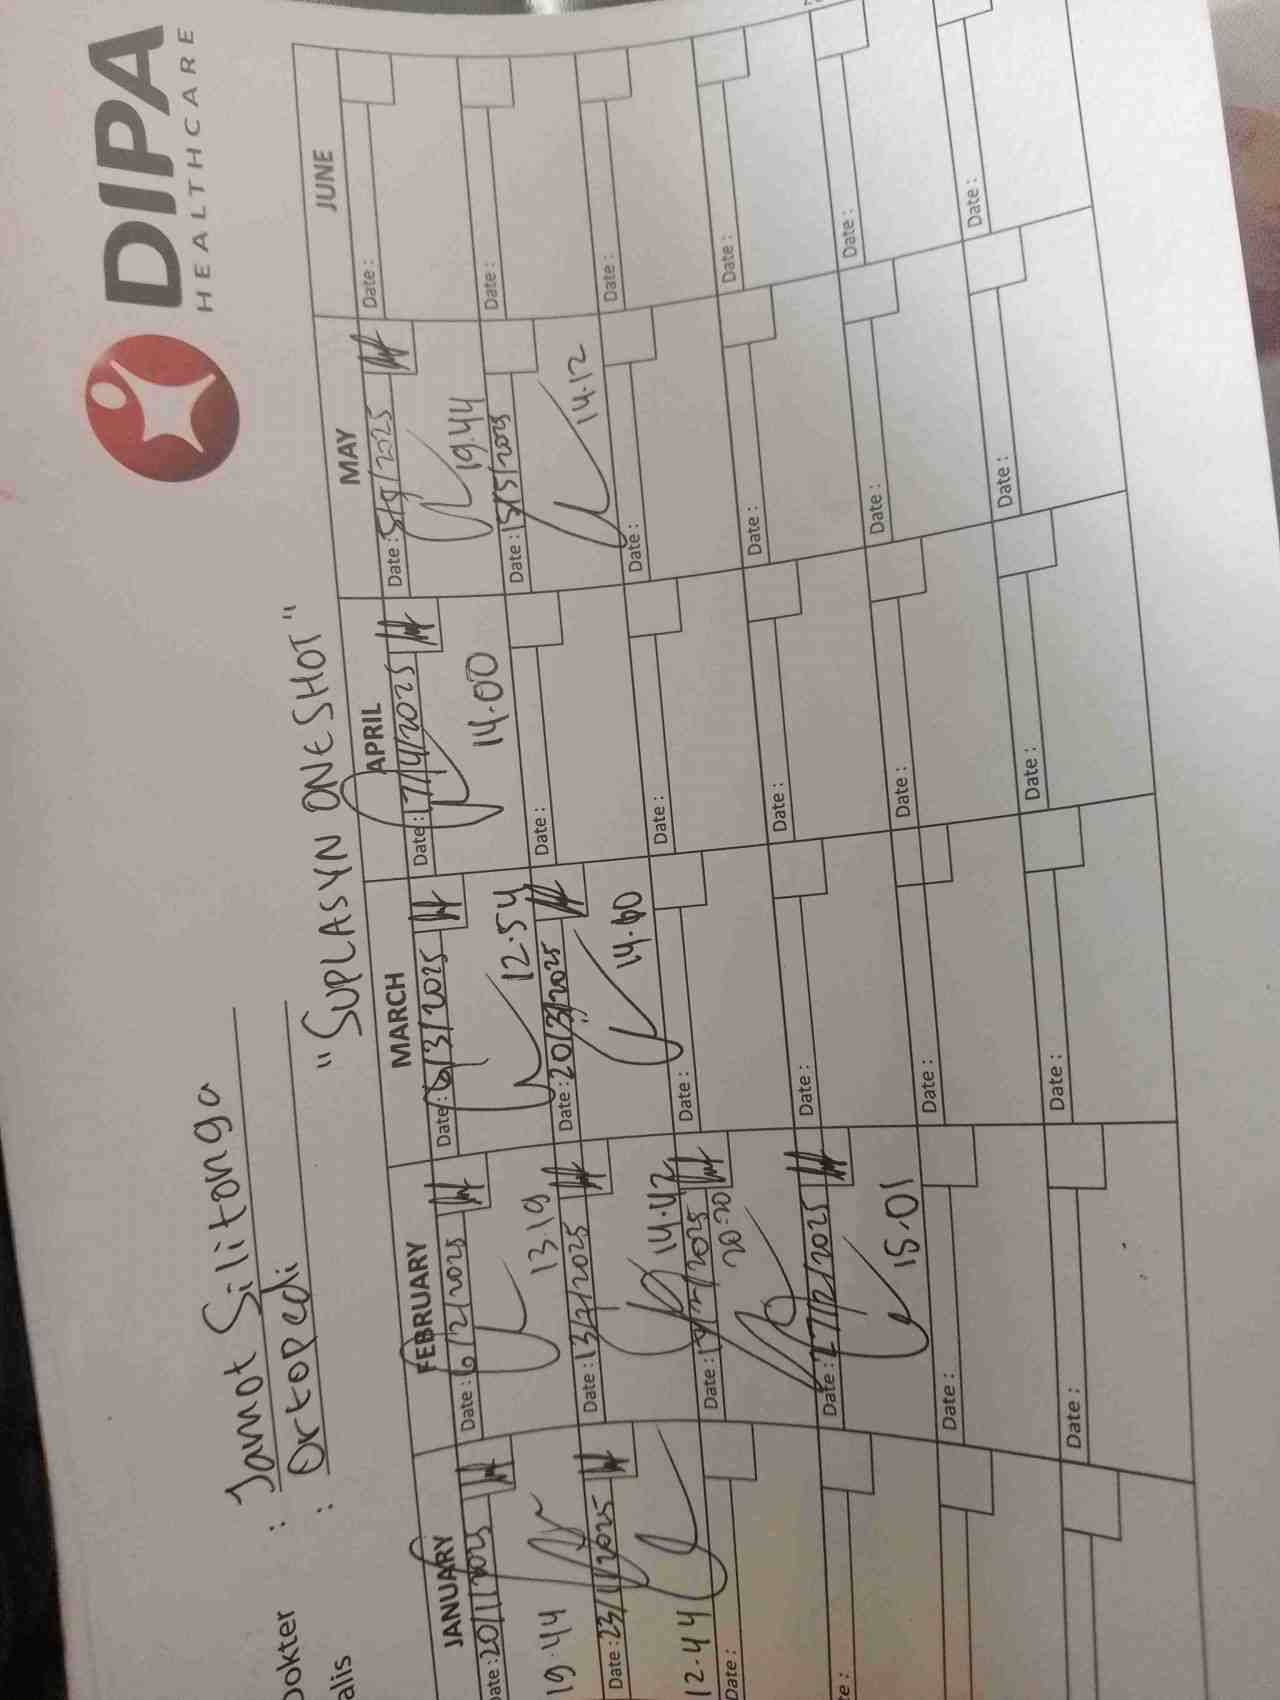 DIPA
HEALTHCARE
Dokter : Jamot Silitonga
alis : Ortopedi
"SUPLASYN ONE SHOT"
JANUARY FEBRUARY MARCH APRIL MAY JUNE
Date : 20/1/2025 Date : 6/2/2025 Date : 6/3/2025 Date : 17/4/2025 Date : 5/5/2025 Date :
19.44 13.19 12.54 14.00 19.44
Date : 23/1/2025 Date : 13/2/2025 Date : 20/3/2025 Date : Date : 15/5/2025 Date :
12.44 14.42 14.00 14.12
Date : Date : Date : Date : Date : Date :
20.20
Date : Date : 27/2/2025 Date : Date : Date : Date :
15.01
Date : Date : Date : Date : Date :
Date : Date : Date : Date : Date :